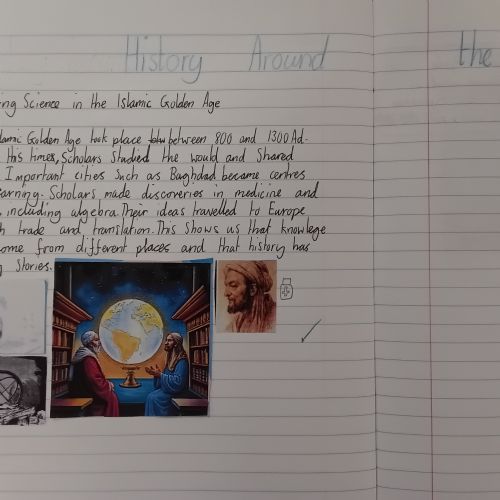 History Around the
ing Science in the Islamic Golden Age
lamic Golden Age took place between 800 and 1300 Ad.
His times, Scholars studied the would and Shared
Important cities Such as Baghdad became centres
earning. Scholars made discoveries in medicine and
including algebra. Their ideas travelled to Europe
h trade and translation. This shows us that knowlege
ome from different places and that history has
Stories.